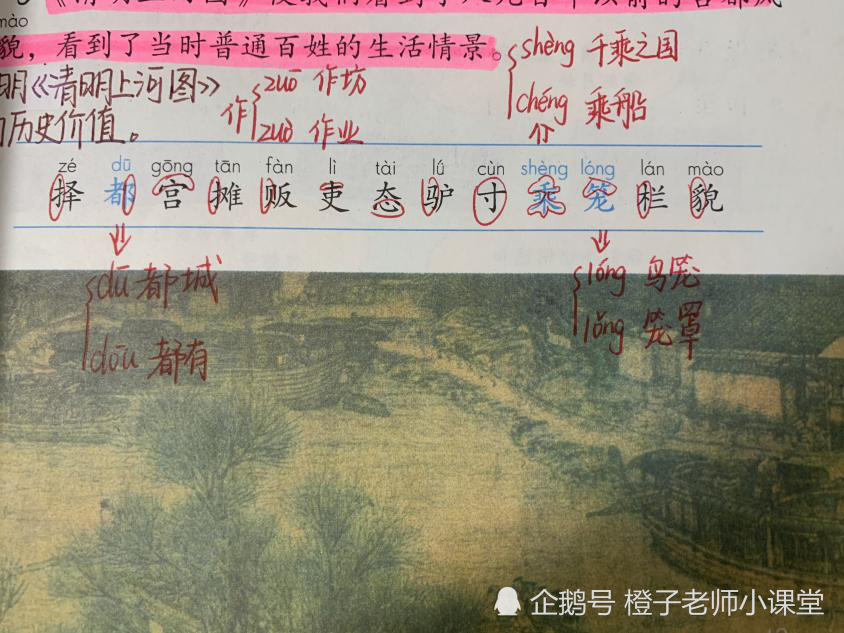 mào
貌，看到了当时普通百姓的生活情景。
shèng 千乘之国
chéng 乘船
明《清明上河图》
历史价值。
作
zuō 作坊
zuò 作业
zé dū gōng tān fàn lì tài lǘ cùn shèng lóng lán mào
择 都 宫 摊 贩 吏 态 驴 寸 乘 笼 栏 貌
dū 都城
dōu 都有
lóng 鸟笼
lǒng 笼罩
企鹅号 橙子老师小课堂